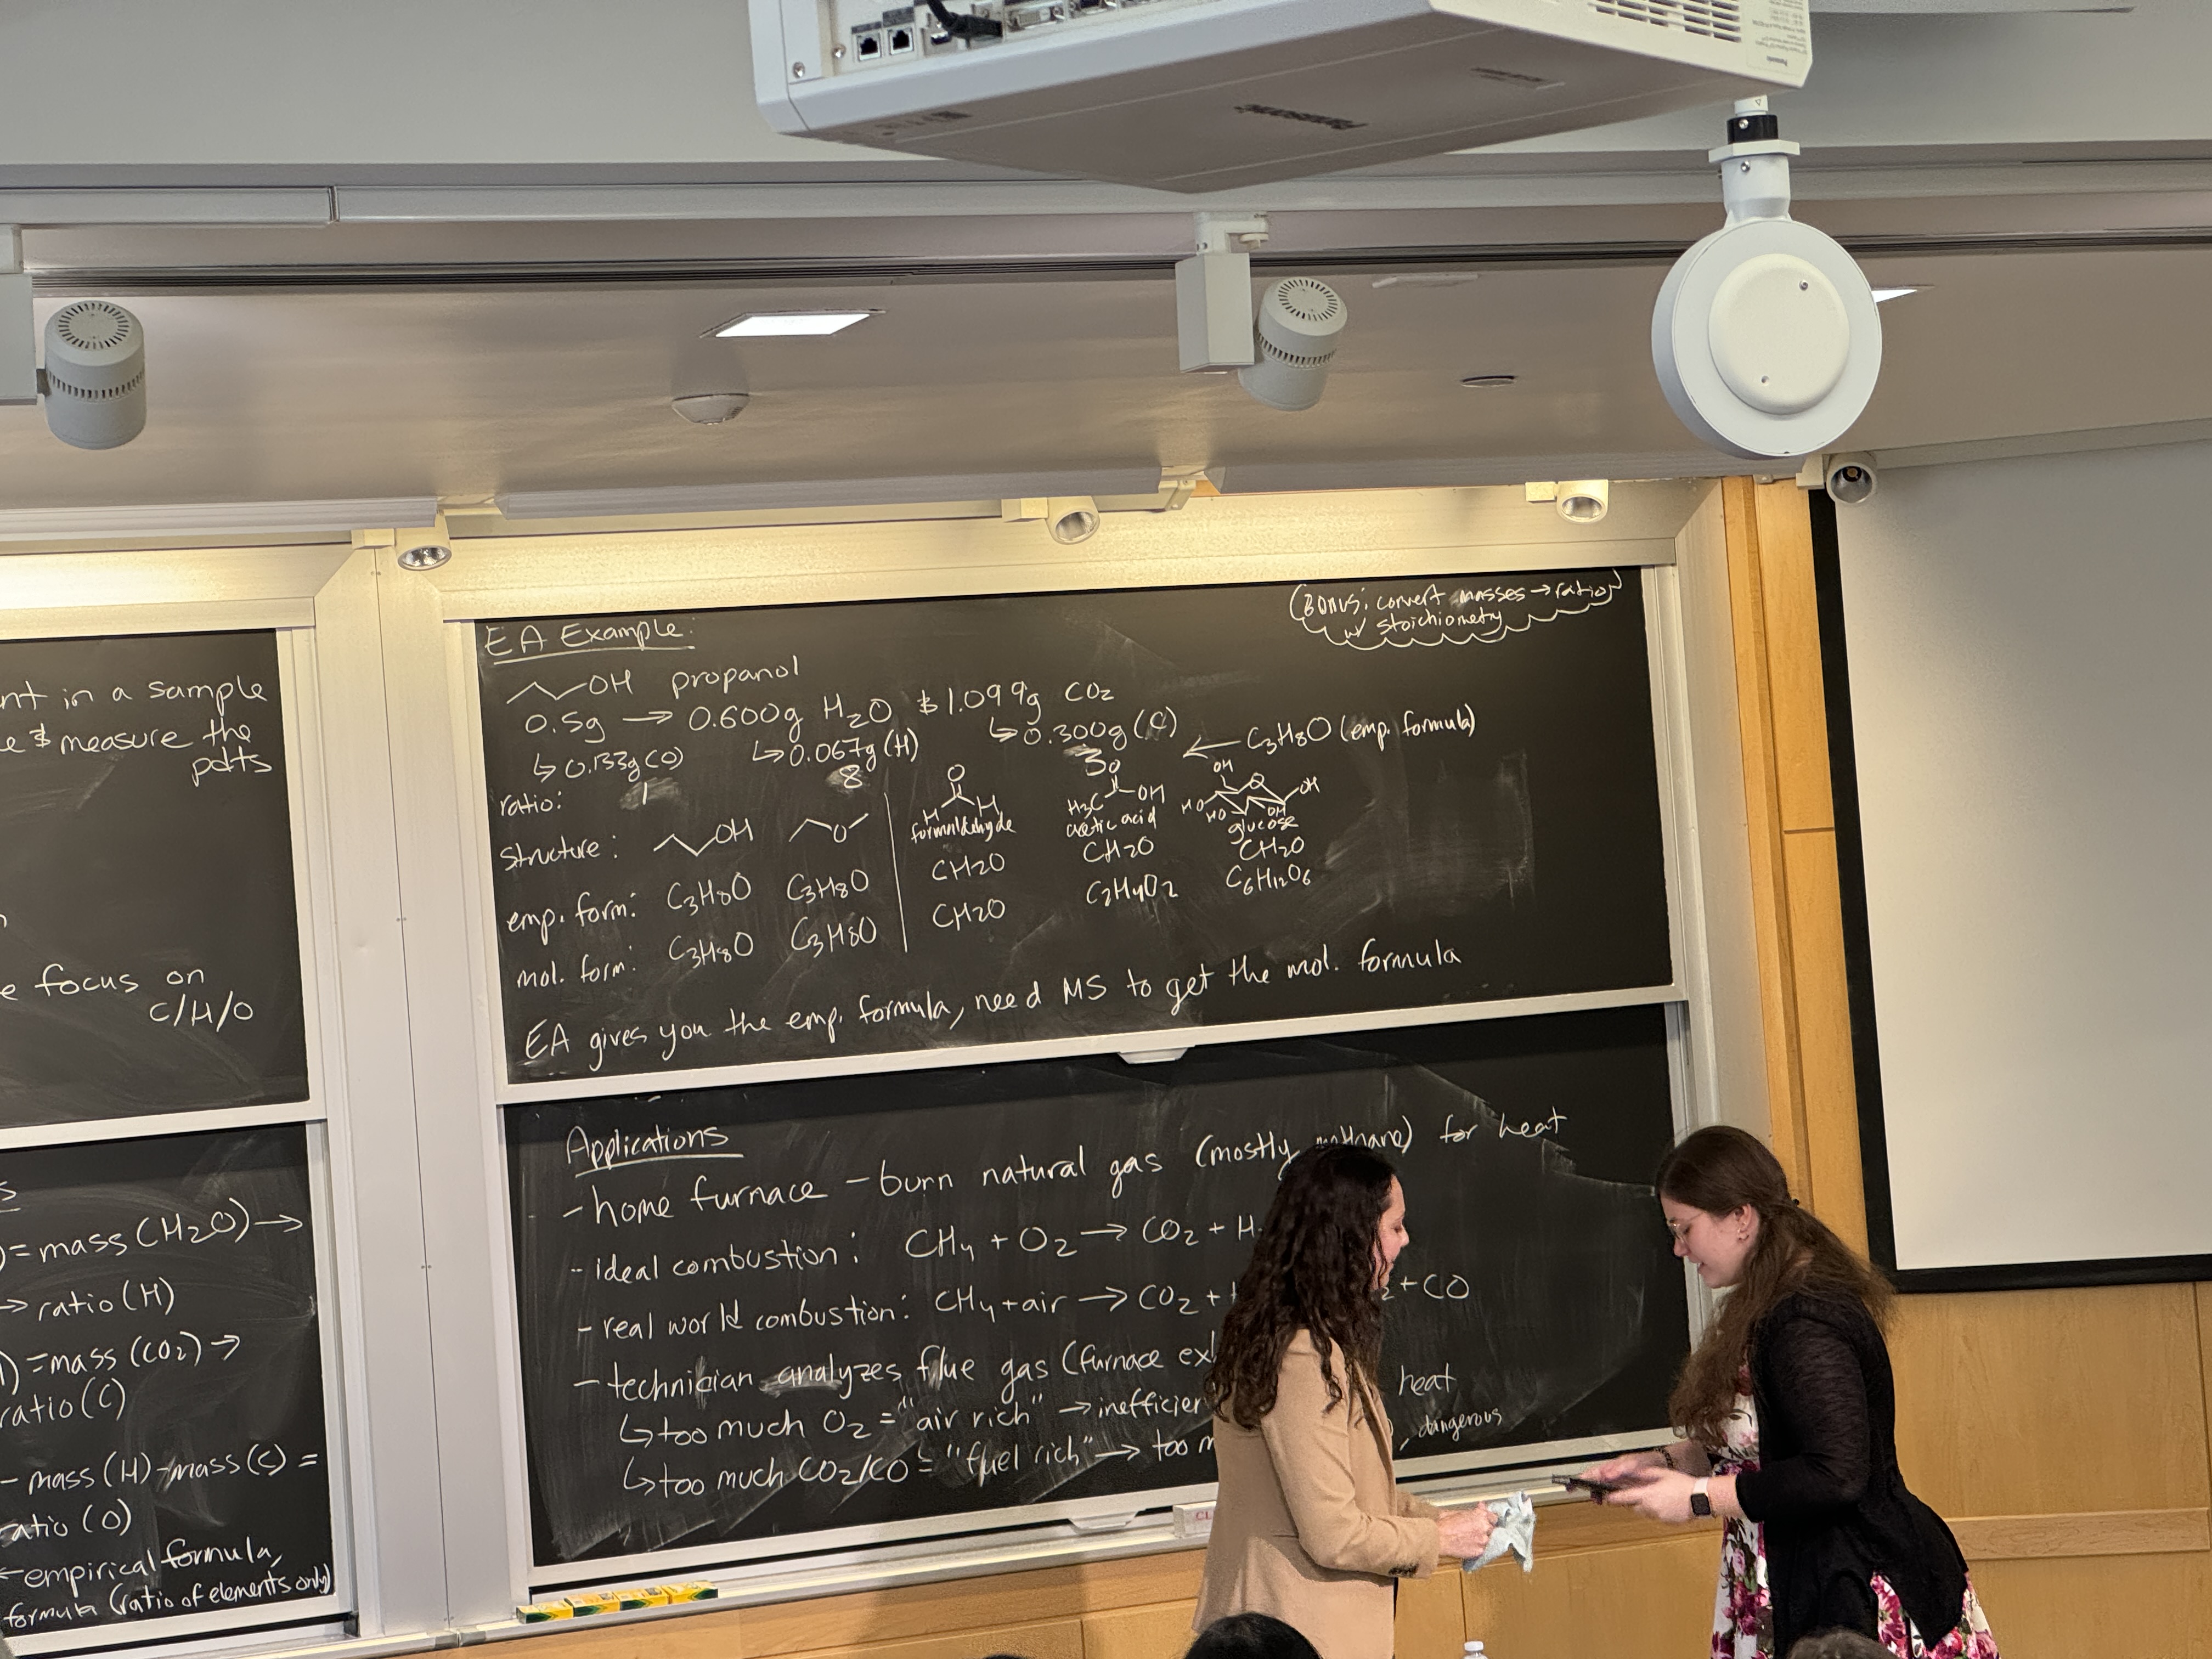 Panasonic
nt in a sample
e & measure the
pdts
e focus on
C/H/O
s
) = mass (H2O) →
→ ratio (H)
) = mass (CO2) →
ratio (C)
- mass (H) - mass (C) =
ratio (O)
← empirical formula,
formula (ratio of elements only)
EA Example:
(BONUS: convert masses → ratio
w/ stoichiometry
OH propanol
0.5g → 0.600g H2O & 1.099g CO2
↳ 0.133g (O) ↳ 0.067g (H) ↳ 0.300g (C) ← C3H8O (emp. formula)
ratio: 1 8 3
structure: OH O
O H H formaldehyde
O H3C OH acetic acid
OH O HO HO OH OH glucose
emp. form: C3H8O C3H8O CH2O CH2O CH2O
mol. form: C3H8O C3H8O CH2O C2H4O2 C6H12O6
EA gives you the emp. formula, need MS to get the mol. formula
Applications
- home furnace - burn natural gas (mostly methane) for heat
- ideal combustion: CH4 + O2 → CO2 + H
- real world combustion: CH4 + air → CO2 + 2 + CO
- technician analyzes flue gas (furnace ex
↳ too much O2 = "air rich" → inefficien heat
↳ too much CO2/CO = "fuel rich" → too m , dangerous